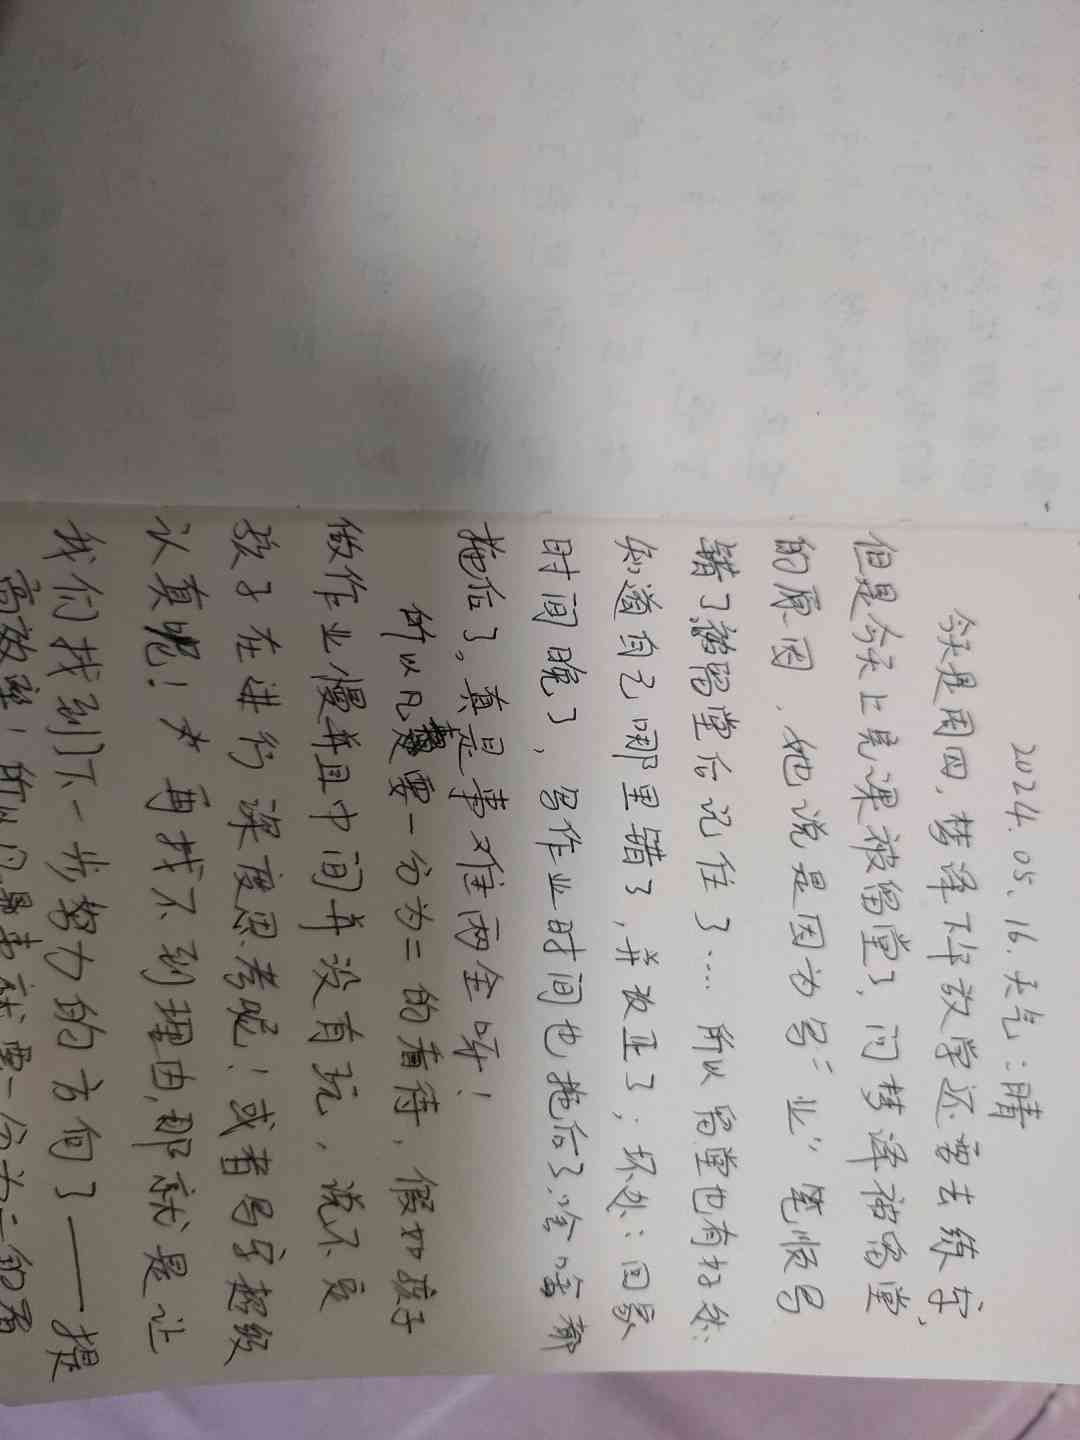 2024.05.16.天气:晴
今天是周四,梦泽下午放学还要去练字,
但是今天上完课被留堂了,问梦泽被留堂
的原因,她说是因为写"业"笔顺写
错了,留堂后记住了… 所以留堂也有好处:
知道自己哪里错了,并改正了;坏处:回家
时间晚了,写作业时间也拖后了,啥啥都
拖后了。真是事难两全呀!
所以凡是要一分为二的看待,假如孩子
做作业慢并且中间并没有玩,说不定
孩子在进行深度思考呢!或者写字超级
认真呢!再找不到理由,那就是让
我们找到下一步努力的方向了——提
高效率!所以凡是事就要一分为二的看